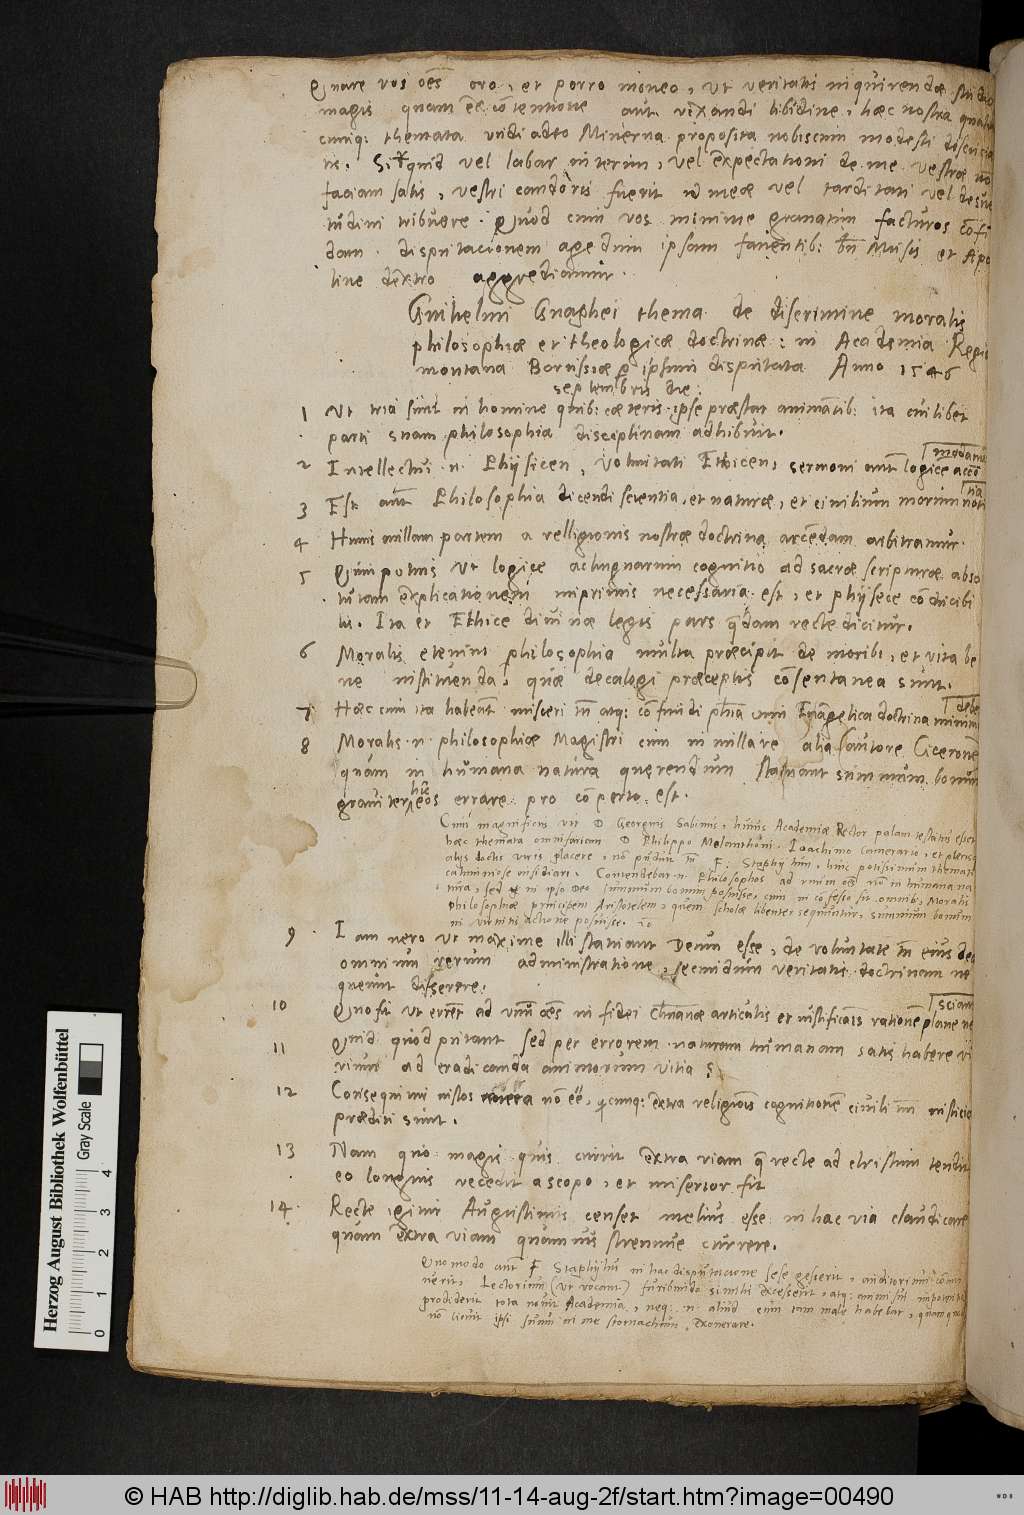 Quare vos oēs oro, et porro moneo, ut veritatis inquirendæ studio
magis quam eē cōtentione aut rixandi libidine, hæc nostra qualia
cunq: themata
proposita nobiscum modesti disserere
tis. Si quid vel labar interim, vel expectationi de me vestræ nō
faciam satis, vestri candoris fuerit id meæ vel tarditati vel desue
tudini tribuere. Quod cum vos minime gravatim facturos cōfi
dam, disputacionem agedum ipsam faventib: bn̄ Musis et Apo
line dextro aggrediamur.
Guihelmi Gnaphei thema de discrimine moralis
philosophiæ et theologicæ doctrinæ: in Academia Regio
montana Borussiæ p ipsum disputata Anno 1546
septembris die:
1 Ut tria sunt in homine quib: cæteris ipse præstat animātib: ita cuilibet
parti suam philosophia disciplinam adhibuit.
2 Intellectui .n. Physicen, Voluntati Ethicen, sermoni aut̄ logice accō
modavit
3 Est aut̄ Philosophia dicendi scientia, et naturæ, et civilium morum noti
tia
4 Huius nullam partem a relligionis nostræ doctrina arcēdam arbitramur.
5 Quin potius ut logice ac linguarum cognitio ad sacræ scripturæ abso
lutam explicationem inprimis necessaria est, et physice cōducibi
lis. Ita et Ethice divinæ legis pars q̄dam recte dicitur.
6 Moralis etenim philosophia multa præcipit de morib:, et vita be
ne instituenda, quæ decalogi præceptis cōsentanea sunt.
7 Hæc cum ita habeāt misceri tn̄ atq: cōfundi phīa cum Euāgelica doctrina minime
debet
8 Moralis .n. philosophiæ Magistri cum in nulla re alia (autore Cicerone)
quam in humana natura querendum statuant summum bonum
graviter hic eos errare pro cōperto est.
Cum magnificus vir D Georgius Sabinus, huius Academiæ Rector palam testatus esset
hæc themata omnifariam D Philippo Melanthoni, Ioachimo Camerario, et pleris
aliis doctis viris placere, nō potuit tn̄ F: Staphylus, huic potissimum themati
calumniose insidiari. Contendebat .n. Philosophos ad unum oēs nō in humana na
tura, sed in ipso Deo summum bonum posuisse, cum in cōfesso sit omnib:, Moralis
philosophiæ principem Aristotelem, quem scholæ libenter sequuntur, summum bonum
in virtutis actione posuisse.
9 Iam vero ut maxime illi statuant Deum esse, de voluntate tn̄ eius deq
omnium rerum administratione, secundum veritatis doctrinam ne
queunt disserere.
10 Quo fit ut errēt ad unū oēs in fidei chr̄ianæ articulis et iustificatiōis rationē plane ne
sciant
11 Quid quod putant sed per errorem naturam humanam satis habere vi
rium ad eradicanda animorum vitia?
12 Consequi iustos nō eē, q̄cunq: extra religiōis cognitionē civili tn̄ iusticia
præditi sunt.
13 Nam quo magis quis currit extra viam q̄ recte ad christum tendit
eo longius recedit a scopo, et miserior fit
14 Recte igitur Augustinus censet melius esse in hac via claudicare
quam extra viam quamvis strenue currere.
Quomodo aut̄ F Staphylus in hac disputacione sese gesserit, auditorium
nerit, Lectorium (ut vocant) furibundo similis excesserit, atq: animi sui impotentiā
prodiderit tota novit Academia, neq: .n. aliud eum tam male habebat, quam quod
nō licuit ipsi suum in me stomachum exonerare.
Herzog August Bibliothek Wolfenbüttel
Gray Scale
0 1 2 3 4
© HAB http://diglib.hab.de/mss/11-14-aug-2f/start.htm?image=00490